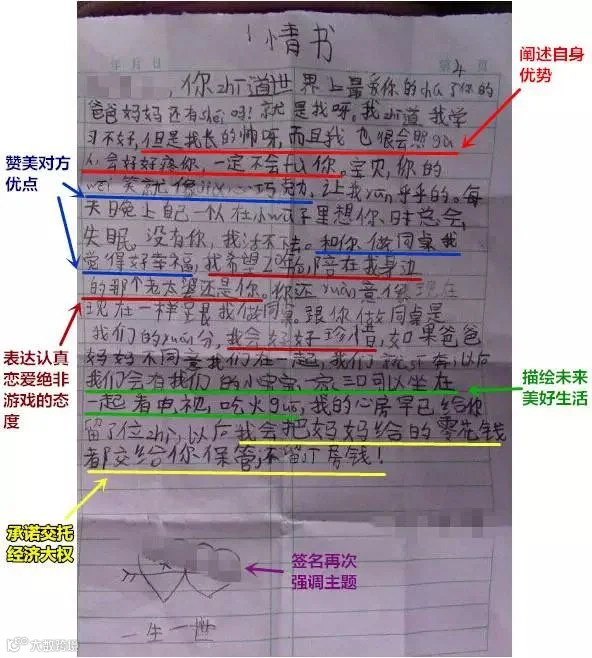 情书
年 月 日 第4页
，你zhi道世界上最爱你的cha了你的
爸爸妈妈还有shei吗！就是我呀。我zhi道我学
习不好，但是我长的帅呀，而且我也恨会照gu
人会好好疼你，一定不会fu你。宝贝，你的
wei笑就像巧克力，让我ruan乎乎的。每
天晚上自己一个人在小wu子里想你，时总会
失眠。没有你，我活不下去。和你做同桌我
觉得好幸福，我希望陪在我身边
的那个老太婆还是你。你还yuan意像现在
现在一样跟我做同桌。跟你做同桌是
我们的yuan分，我会好好珍惜，如果爸爸
妈妈不同意我们在一起，我们就奔，以后
我们会有我们的小宝宝一家三口可以坐在
一起看电视，吃火guo，我的心房早已给你
留了位zhi，以后我会把妈妈给的零花钱
都交给你保管，不留房钱！
一生一世
阐述自身
优势
赞美对方
优点
表达认真
恋爱绝非
游戏的态
度
描绘未来
美好生活
承诺交托
经济大权
签名再次
强调主题